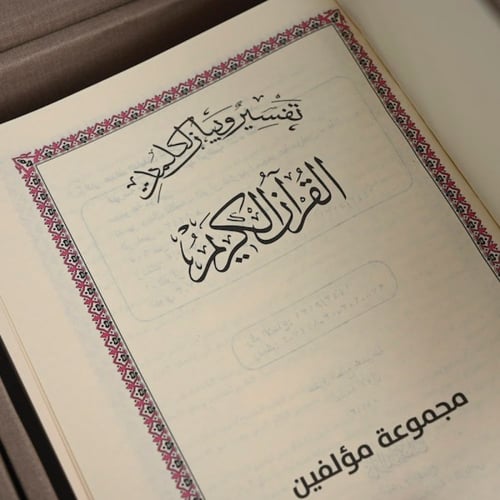 تفسير وبيان كلمات
القرآن الكريم
مجموعة مؤلفين